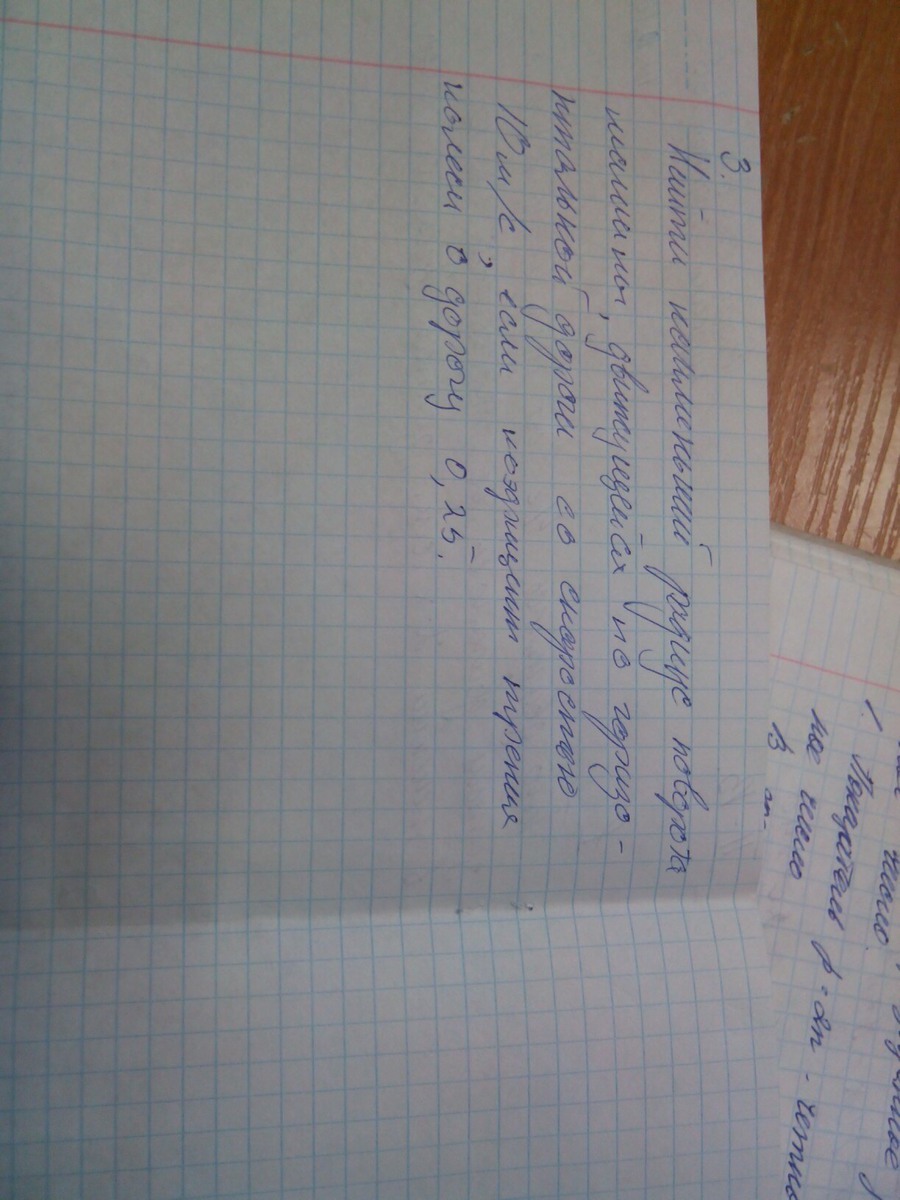 3.
Найти наименьший радиус поворота
машины, движущейся по горизо-
нтальной дороги со скоростью
10 м/с, если коэффициент трения
колеси о дорогу 0,25.
число.
1. Показатель p=2n - четно
ное число